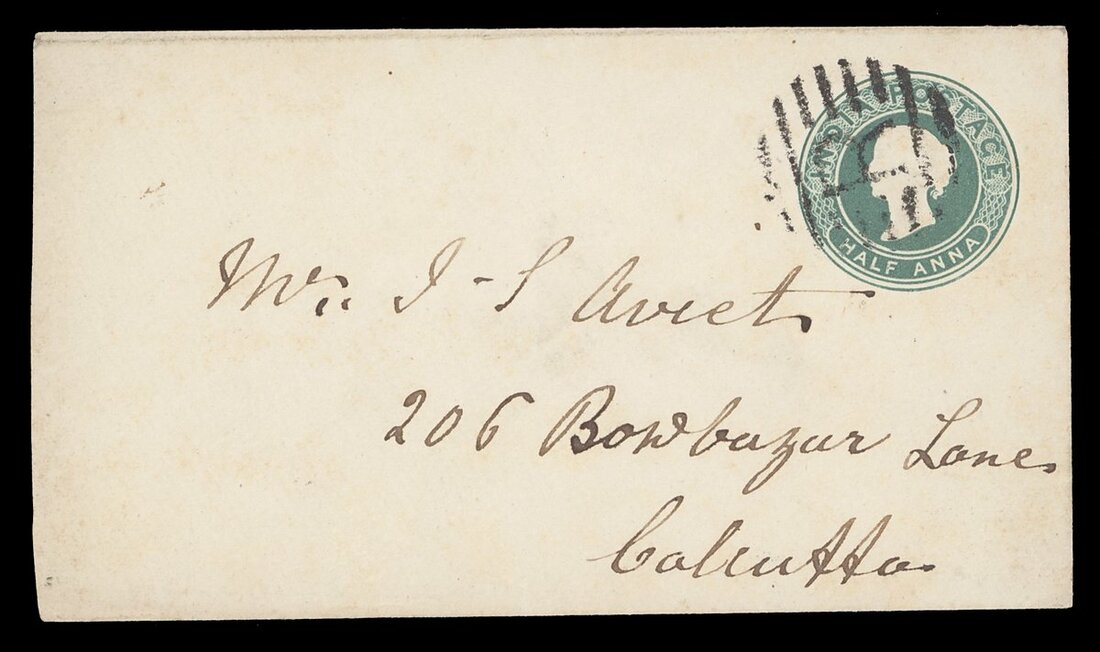 INDIA POSTAGE
HALF ANNA
Mr. J-S Aviet
206 Bowbazar Lane
Calcutta